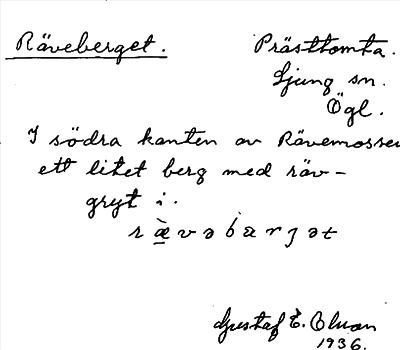 Räveberget.
Prästtomta.
Ljung sn.
Ögl.
I södra kanten av Rävemossen
ett litet berg med räv-
gryt i.
Gustaf E. Olson
1936.